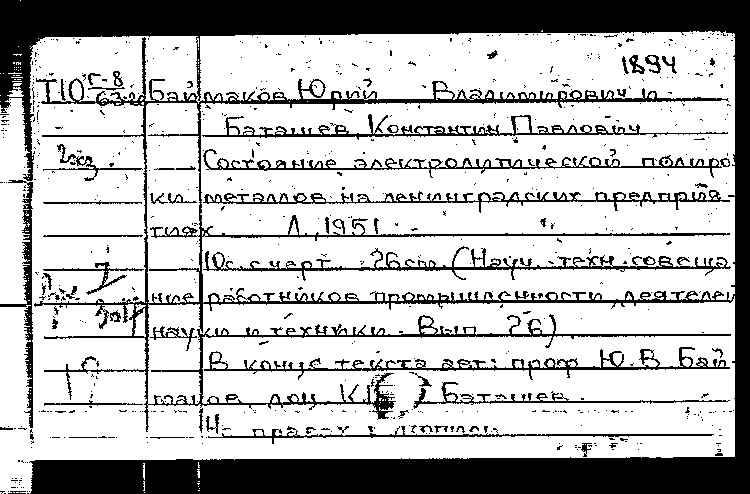 1894
Т10 Г-8 Баймаков, Юрий Владимирович и
Баташев, Константин Павлович.
2экз. Состояние электролитической полиро
ки металлов на ленинградских предприя-
тиях. Л., 1951.
10с. с черт. 26см (Науч. техн. совеща-
ние работников промышленности, деятелей
науки и техники. Вып. 26)
В конце текста авт.: проф. Ю.В. Бай-
19 маков, доц. К.П. Баташев.
На правах рукописи